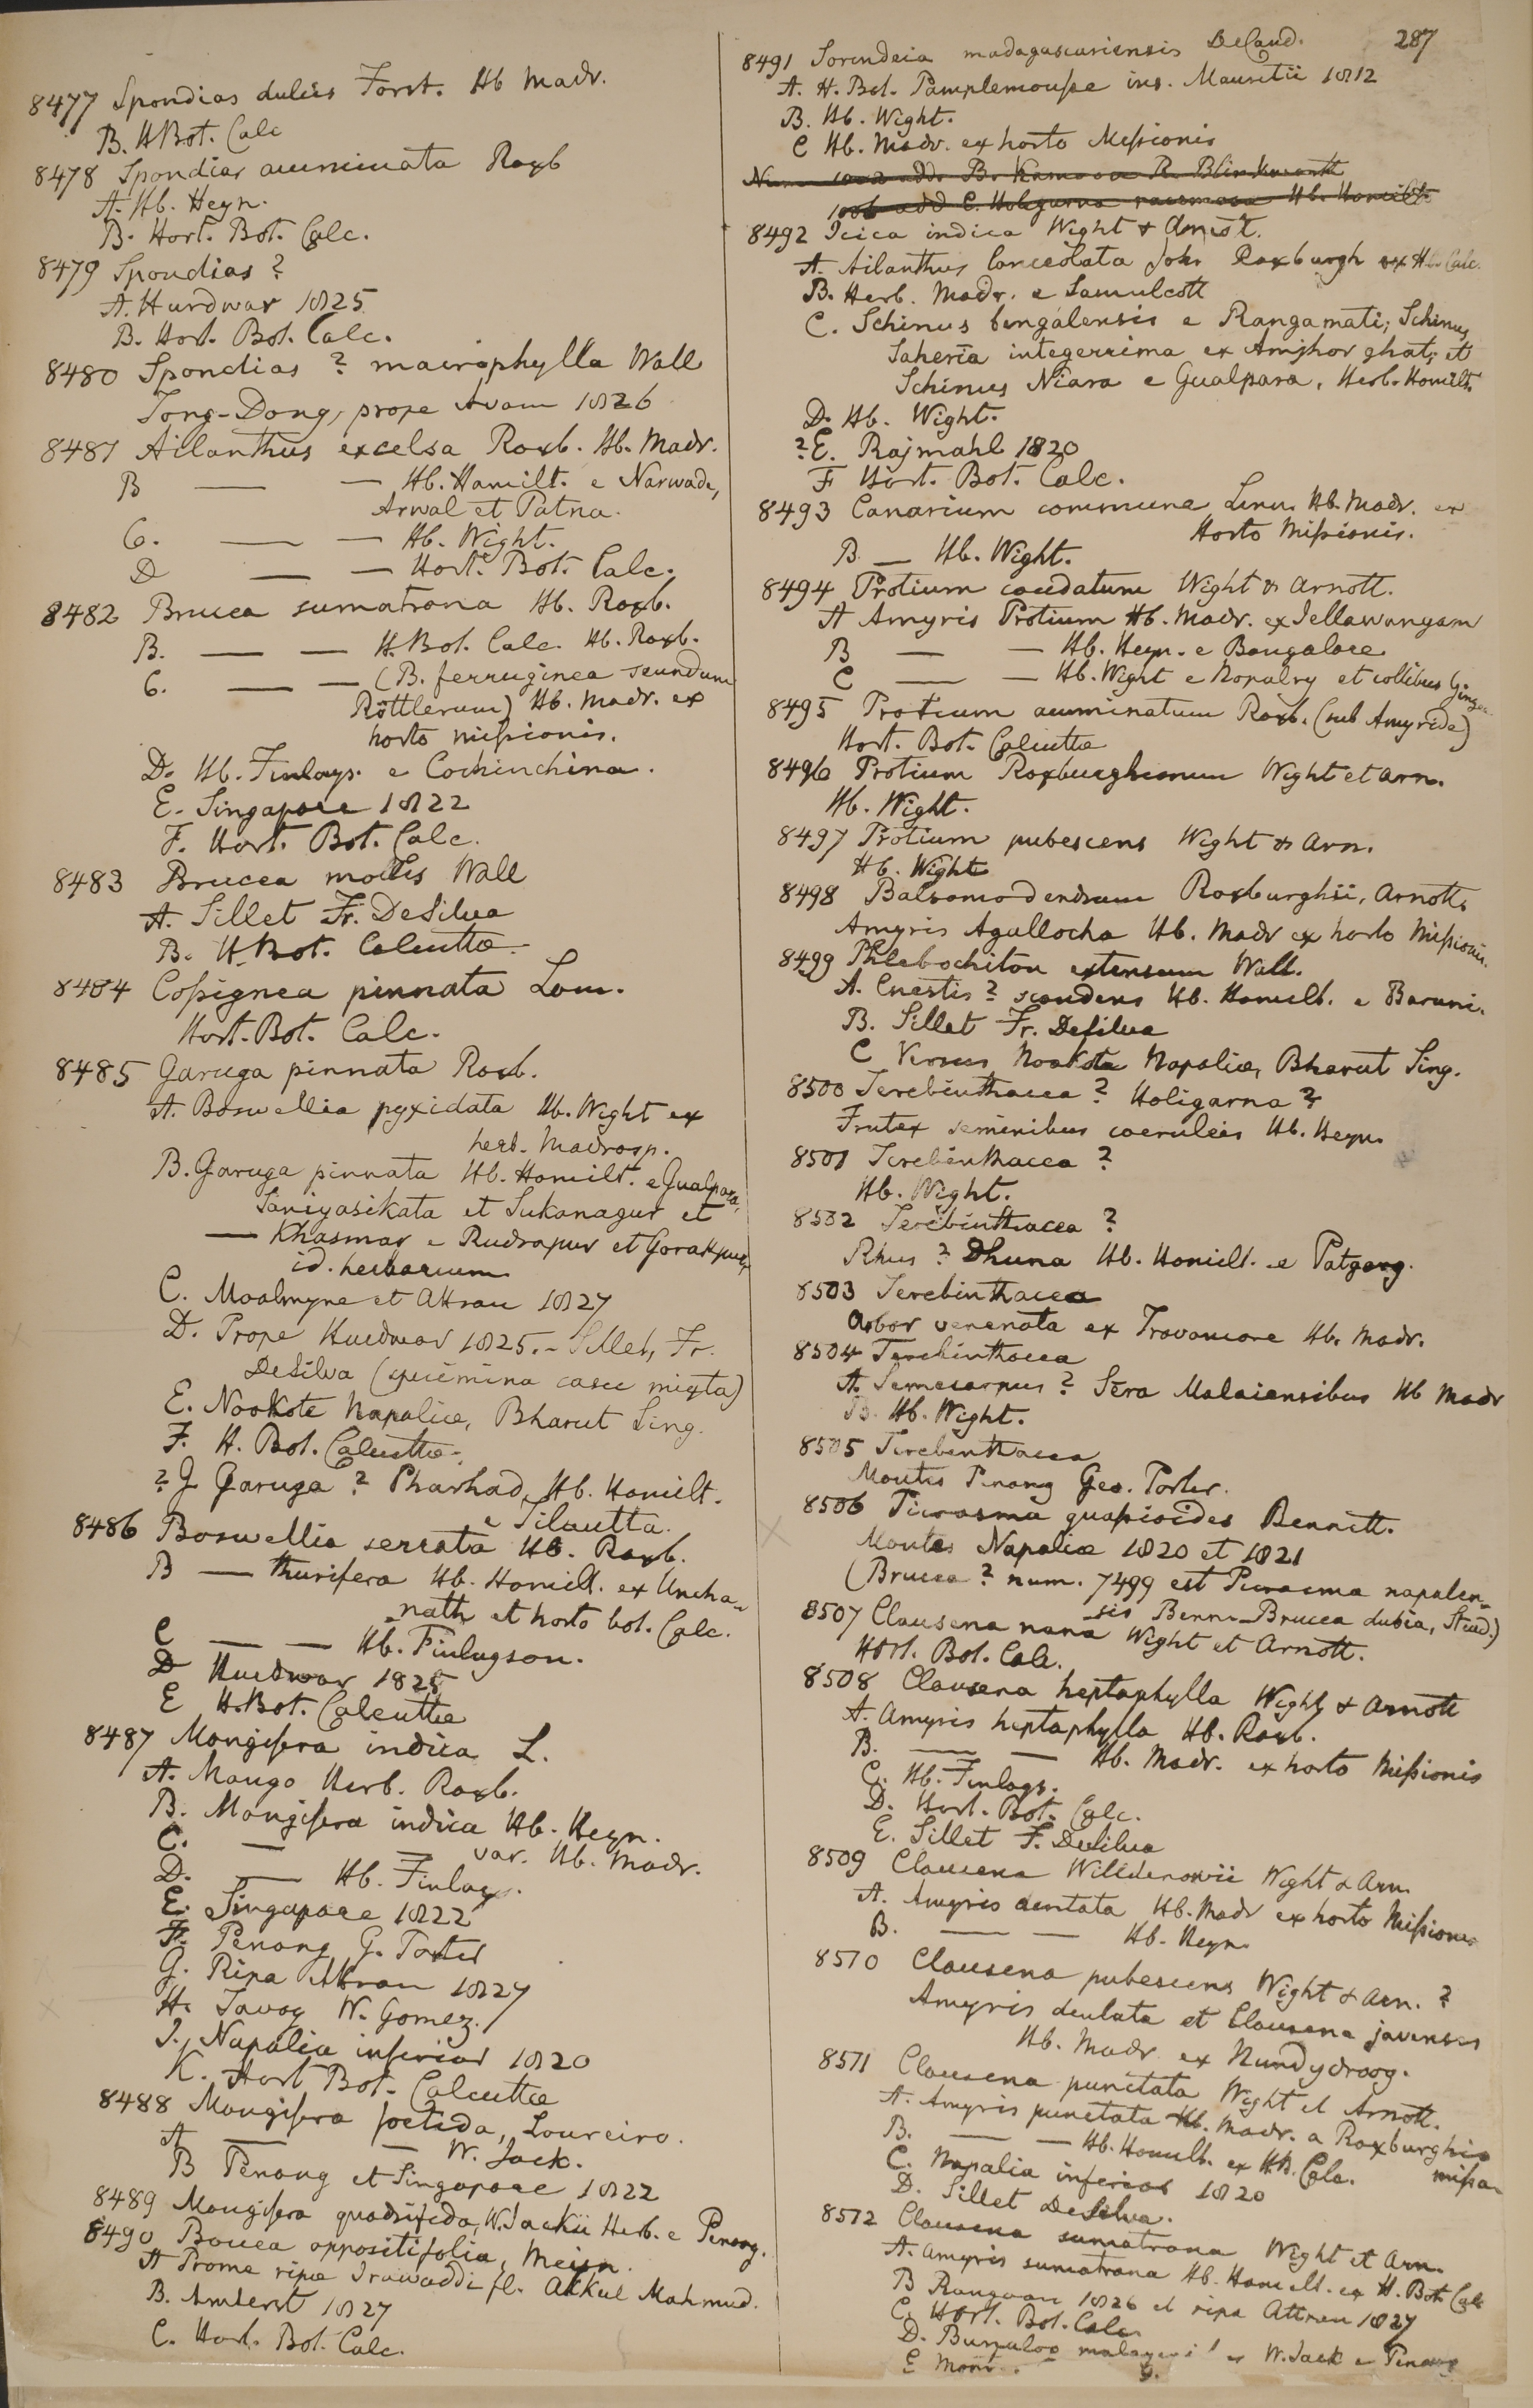 8477 Spondias dulcis Forst. Hb Madr.
B. H Bot. Calc
8478 Spondias acuminata Roxb
A. Hb. Heyn.
B. Hort. Bot. Calc.
8479 Spondias ?
A. Hurdwar 1825
B. Hort. Bot. Calc.
8480 Spondias ? macrophylla Wall
Tong-Dong, prope Avam 1826
8481 Ailanthus excelsa Roxb. Hb. Madr.
B — — Hb. Hamilt. e Narwade,
Arwal et Patna.
C. — — Hb. Wight.
D — — Hort. Bot. Calc.
8482 Brucea sumatrana Hb. Roxb.
B. — — H. Bot. Calc. Hb. Roxb.
C. — — (B. ferruginea secundum
Röttlerum) Hb. Madr. ex
horto missionis.
D. Hb. Finlays. e Cochinchina.
E. Singapore 1822
F. Hort. Bot. Calc.
8483 Brucea mollis Wall
A. Sillet Fr. DeSilva
B. H. Bot. Calcutta
8484 Cossignea pinnata Lam.
Hort. Bot. Calc.
8485 Garuga pinnata Roxb.
A. Boswellia pyxidata Hb. Wight ex
herb. Madrasp.
B. Garuga pinnata Hb. Hamilt. e Gualpara,
Saniyasikata et Sukanagur et
— Khasmar e Rudrapur et Gorakpur,
id. herbarium
C. Moalmyne et Attran 1827
D. Prope Hurdwar 1825. - Sillet, Fr.
DeSilva (specimina casu mixta)
E. Nookote Napaliæ, Bharut Sing.
F. H. Bot. Calcutta.
? G Garuga ? Pharhad, Hb. Hamilt.
e Silautta.
8486 Boswellia serrata Hb. Roxb.
B — thurifera Hb. Hamilt. ex Uncha-
nath et horto bot. Calc.
C — — Hb. Finlayson.
D Hurdwar 1825
E H. Bot. Calcutta
8487 Mangifera indica L.
A. Mango Herb. Roxb.
B. Mangifera indica Hb. Heyn.
C. — — var. Hb. Madr.
D. — Hb. Finlays.
E. Singapore 1822
F. Penang G. Porter
G. Ripa Attran 1827
H. Tavoy W. Gomez.
I. Napalia inferior 1820
K. Hort Bot. Calcutta
8488 Mangifera foetida, Loureiro.
A — — W. Jack.
B Penang et Singapore 1822
8489 Mangifera quadrifida, W. Jackii Herb. e Penang.
8490 Bouea oppositifolia, Meisn.
A Prome ripæ Irawaddi fl. Akkul Mahmud.
B. Amherst 1827
C. Hort. Bot. Calc.
287
8491 Sorindeia madagascariensis DeCand.
A. H. Bot. Pamplemousse ins. Mauritii 1812
B. Hb. Wight.
C Hb. Madr. ex horto Missionis
Num 1002 add. B. Kamaon R. Blinkworth
1006 add C. Holigarna racemosa Hb. Hamilt.
8492 Icica indica Wight & Arnott.
A. Ailanthus lanceolata Johr Roxburgh ex H. Calc.
B. Herb. Madr. e Samulcott
C. Schinus bengalensis e Rangamati; Schinus
Saheria integerrima ex Amjhor ghat; et
Schinus Niara e Gualpara, Herb. Hamilt.
D. Hb. Wight.
? E. Rajmahl 1820
F Hort. Bot. Calc.
8493 Canarium commune Linn. Hb. Madr. ex
Horto Missionis.
B — Hb. Wight.
8494 Protium caudatum Wight & Arnott.
A Amyris Protium Hb. Madr. ex Jellawungam
B — — Hb. Heyn. e Bangalore
C — — Hb. Wight e Nopalry et collibus
8495 Protium acuminatum Roxb. (sub Amyride)
Hort. Bot. Calcutta
8496 Protium Roxburghianum Wight et Arn.
Hb. Wight.
8497 Protium pubescens Wight & Arn.
Hb. Wight
8498 Balsamodendrum Roxburghii, Arnott
Amyris Agallocha Hb. Madr ex horto Missionis.
8499 Phlebochiton extensum Wall.
A. Cnestis ? scandens Hb. Hamilt. e Baruni.
B. Sillet Fr. DeSilva
C Versus Nookote Napaliæ, Bharut Sing.
8500 Terebinthacea ? Holigarna ?
Frutex seminibus coeruleis Hb. Heyn.
8501 Terebinthacea ?
Hb. Wight.
8502 Terebinthacea ?
Rhus ? Dhuna Hb. Hamilt. e Patgong.
8503 Terebinthacea
Arbor venenata ex Travancore Hb. Madr.
8504 Terebinthacea
A. Semecarpus ? Sera Malaiensibus Hb Madr
B. Hb. Wight.
8505 Terebinthacea
Montis Penang Geo. Porter.
8506 Picrasma quassioides Bennett.
Montes Napaliæ 1820 et 1821
(Brucea ? num. 7499 est Picrasma napalen-
sis Benn. Brucea dubia, Steud.)
8507 Clausena nana Wight et Arnott.
Hort. Bot. Calc.
8508 Clausena heptaphylla Wight & Arnott
A. Amyris heptaphylla Hb. Roxb.
B. — — Hb. Madr. ex horto Missionis
C. Hb. Finlays.
D. Hort. Bot. Calc.
E. Sillet F. DeSilva
8509 Clausena Willdenowii Wight & Arn.
A. Amyris dentata Hb. Madr ex horto Missionis
B. — — Hb. Heyn
8510 Clausena pubescens Wight & Arn. ?
Amyris dentata et Clausena javensis
Hb. Madr. ex Nundydroog.
8511 Clausena punctata Wight et Arnott.
A. Amyris punctata Hb. Madr. a Roxburghio
missa
B. — — Hb. Hamilt. ex H. B. Calc.
C. Napalia inferior 1820
D. Sillet DeSilva.
8512 Clausena sumatrana Wight et Arn.
A. Amyris sumatrana Hb. Hamilt. ex H. Bot. Calc
B Rangoon 1826 et ripa Attran 1827
C. Hort. Bot. Calc.
D. W. Jack e Penang
E